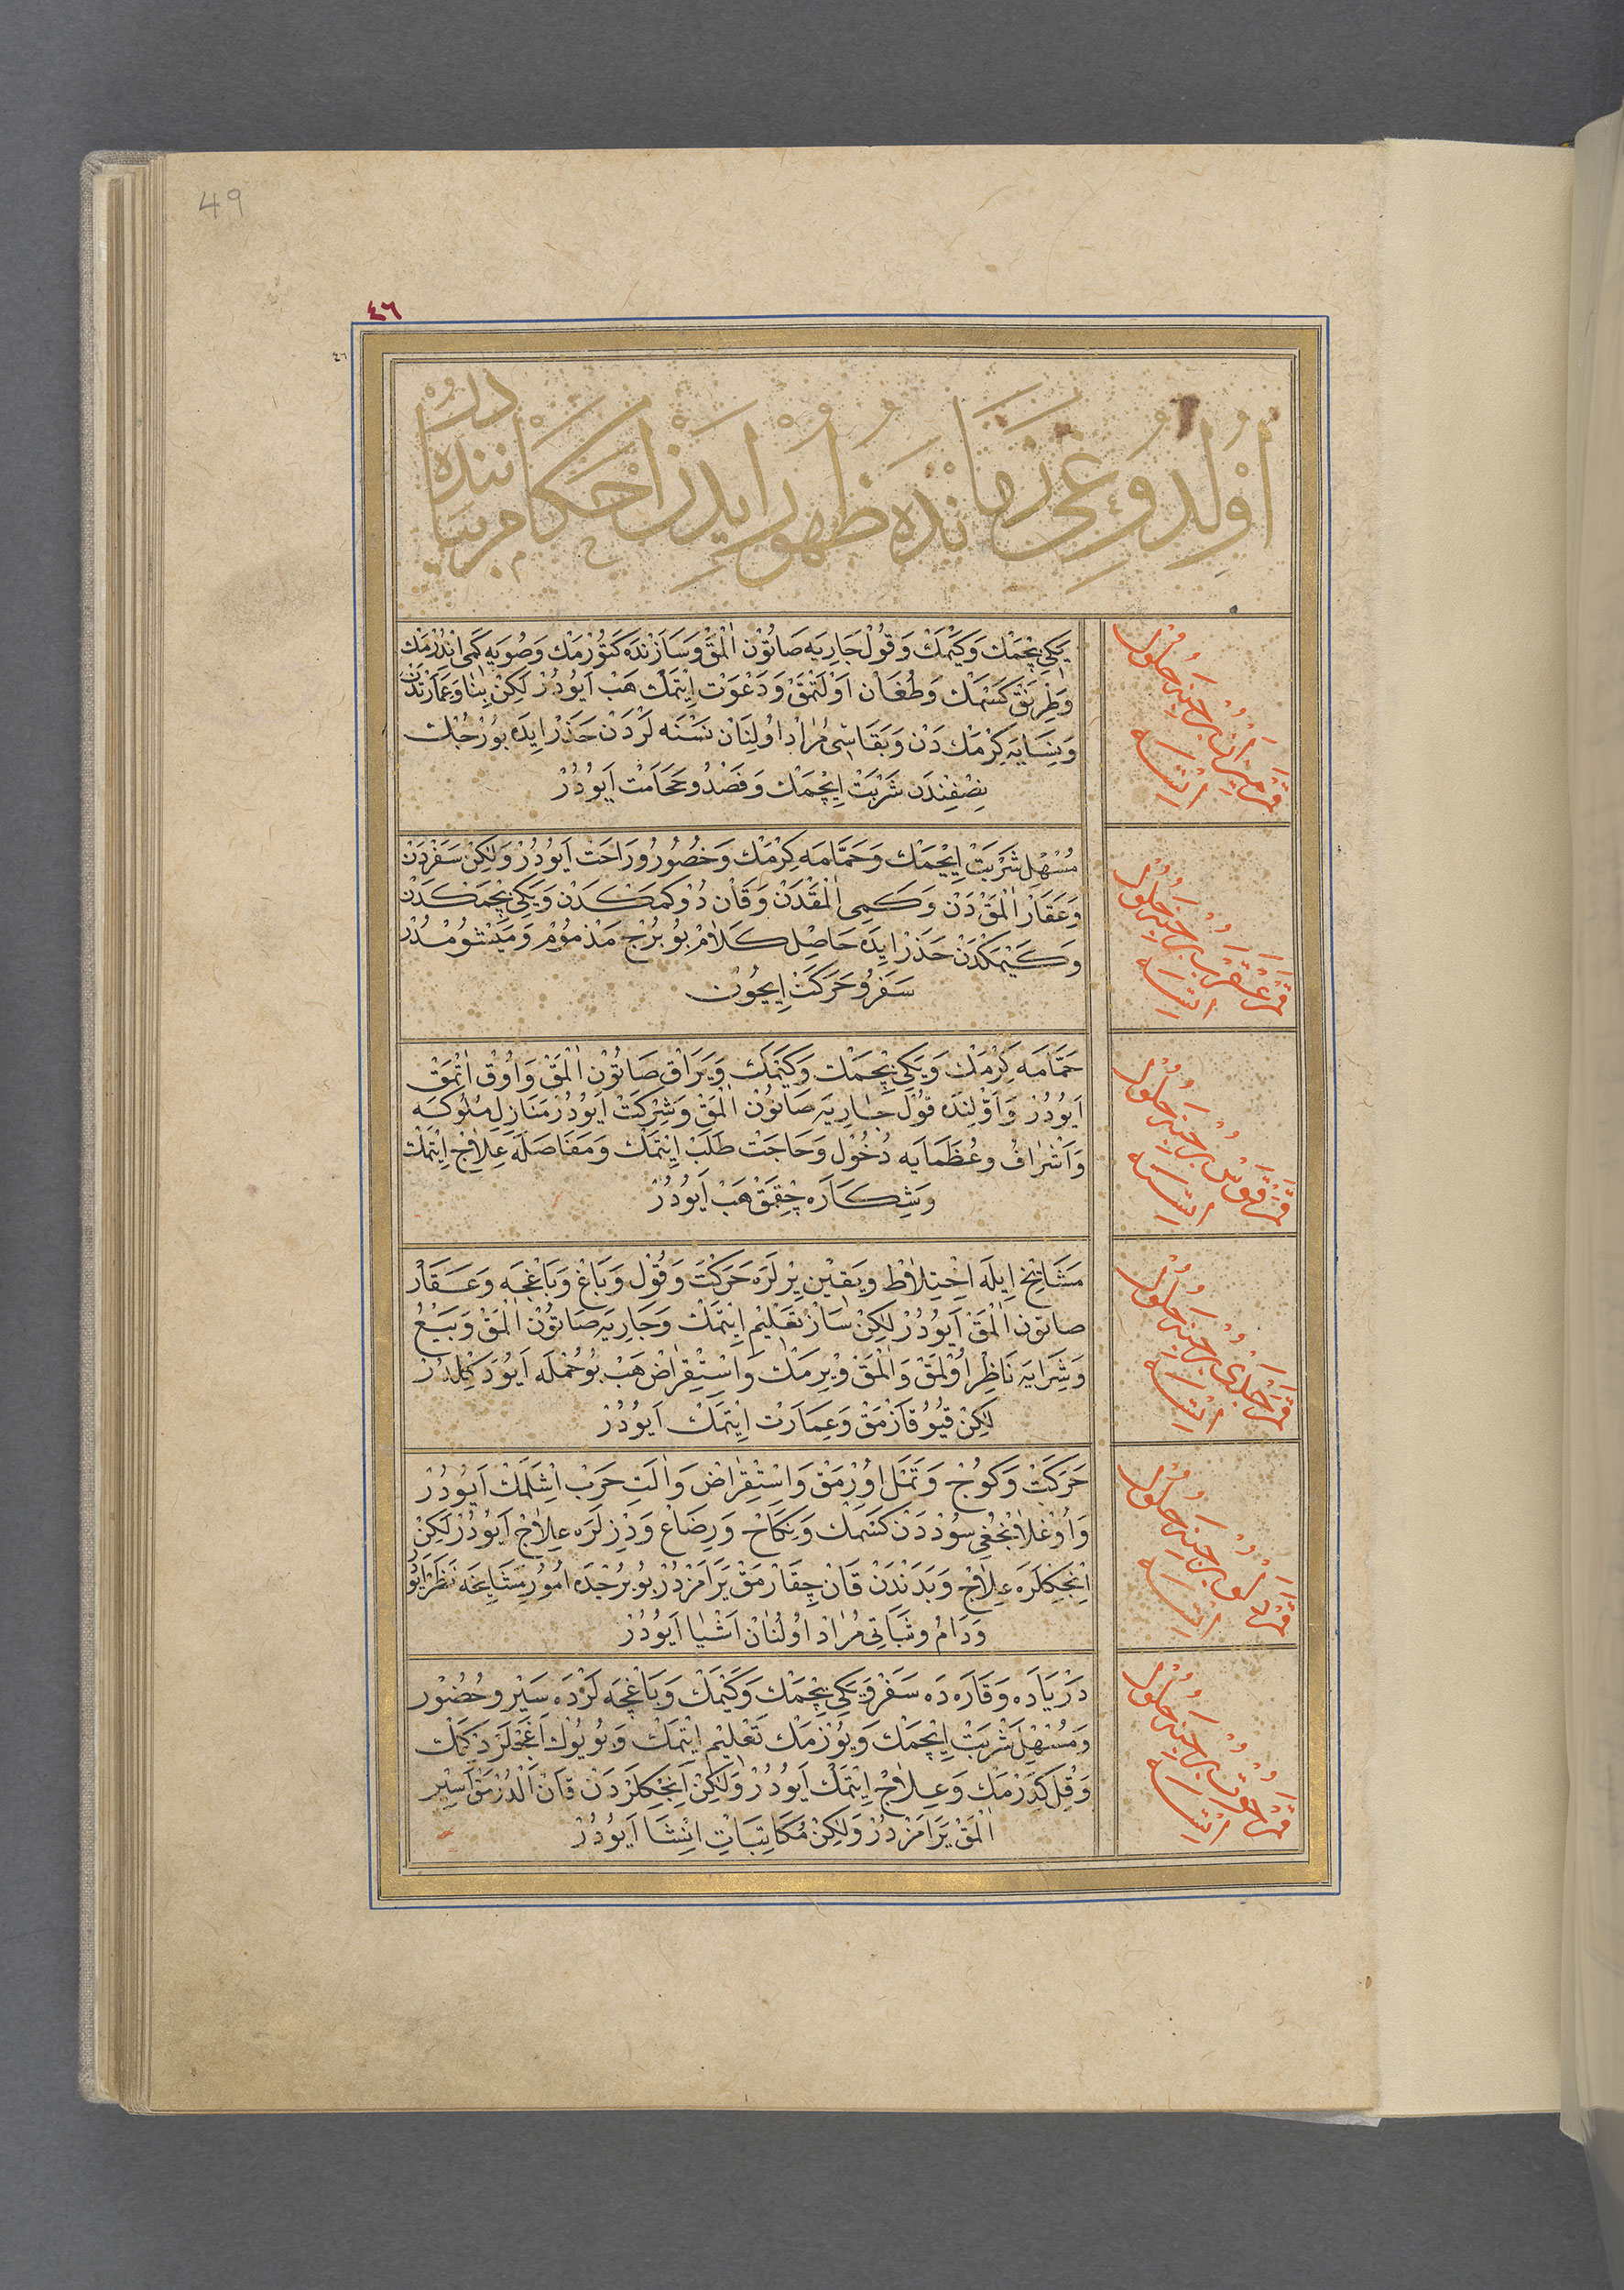 49
٤٦
٤٦
اولدوغی زمانده ظهور ایدن احکام بیاننده در
قمر میزان برجنه حلول
ایتسه
یکی بچمك وکیمك وقول جاریه صاتون المق وسازنده کتورمك وصویه کمی اندرمك
وطریق کسمك وطغان اولتمق ودعوت ایتمك هب ایودر لکن بنا وعمارتدن
وبنایه کرمك دن وبقاسی مراد اولنان نسنه لردن حذر ایده بو برجك
نصفندن شربت ایچمك وفصد وحجامت ایودر
قمر عقرب برجنه حلول
ایتسه
مسهل شربت ایچمك وحمامه کرمك وحضور وراحت ایودر ولکن سفردن
وعقار المق دن وکمی المقدن وقان دوکمکدن ویکی بچمکدن
وکیمکدن حذر ایده حاصل کلام بو برج مذموم ومیشومدر
سفر وحرکت ایچون
قمر قوس برجنه حلول
ایتسه
حمامه کرمك ویکی بچمك وکیمك ویراق صاتون المق واوق اتمق
ایودر واولنده قول جاریه صاتون المق وشرکت ایودر منازل ملوکه
واشراف وعظمایه دخول وحاجت طلب ایتمك ومفاصله علاج ایتمك
وشکاره چقمق هب ایودر
قمر جدی برجنه حلول
ایتسه
مشایخ ایله اختلاط ویقین یرلره حرکت وقول وباغ وباغچه وعقار
صاتون المق ایودر لکن ساز تعلیم ایتمك وجاریه صاتون المق وبیع
وشرایه ناظر اولمق والمق ویرمك واستقراض هب بو جمله ایو دکلدر
لکن قیو قازمق وعمارت ایتمك ایودر
قمر دلو برجنه حلول
ایتسه
حرکت وکوج وتمل اورمق واستقراض والت حرب اشلمك ایودر
واوغلانجغی سوددن کسمك ونکاح ورضاع ودزلره علاج ایودر لکن
انجکلره علاج وبدندن قان چقارمق یرامزدر بو برجده امور مشایخه نظر ایو
ودام وثباتی مراد اولنان اشیا ایودر
قمر حوت برجنه حلول
ایتسه
دریاده وقاره ده سفر ویکی بچمك وکیمك وباغچه لرده سیر وحضور
ومسهل شربت ایچمك ویوزمك تعلیم ایتمك وبویوك اغچلر دکمك
وقل کدرمك وعلاج ایتمك ایودر ولکن انجکلردن قان الدرمق اسیر
المق یرامزدر ولکن مکاتبات انشا ایودر